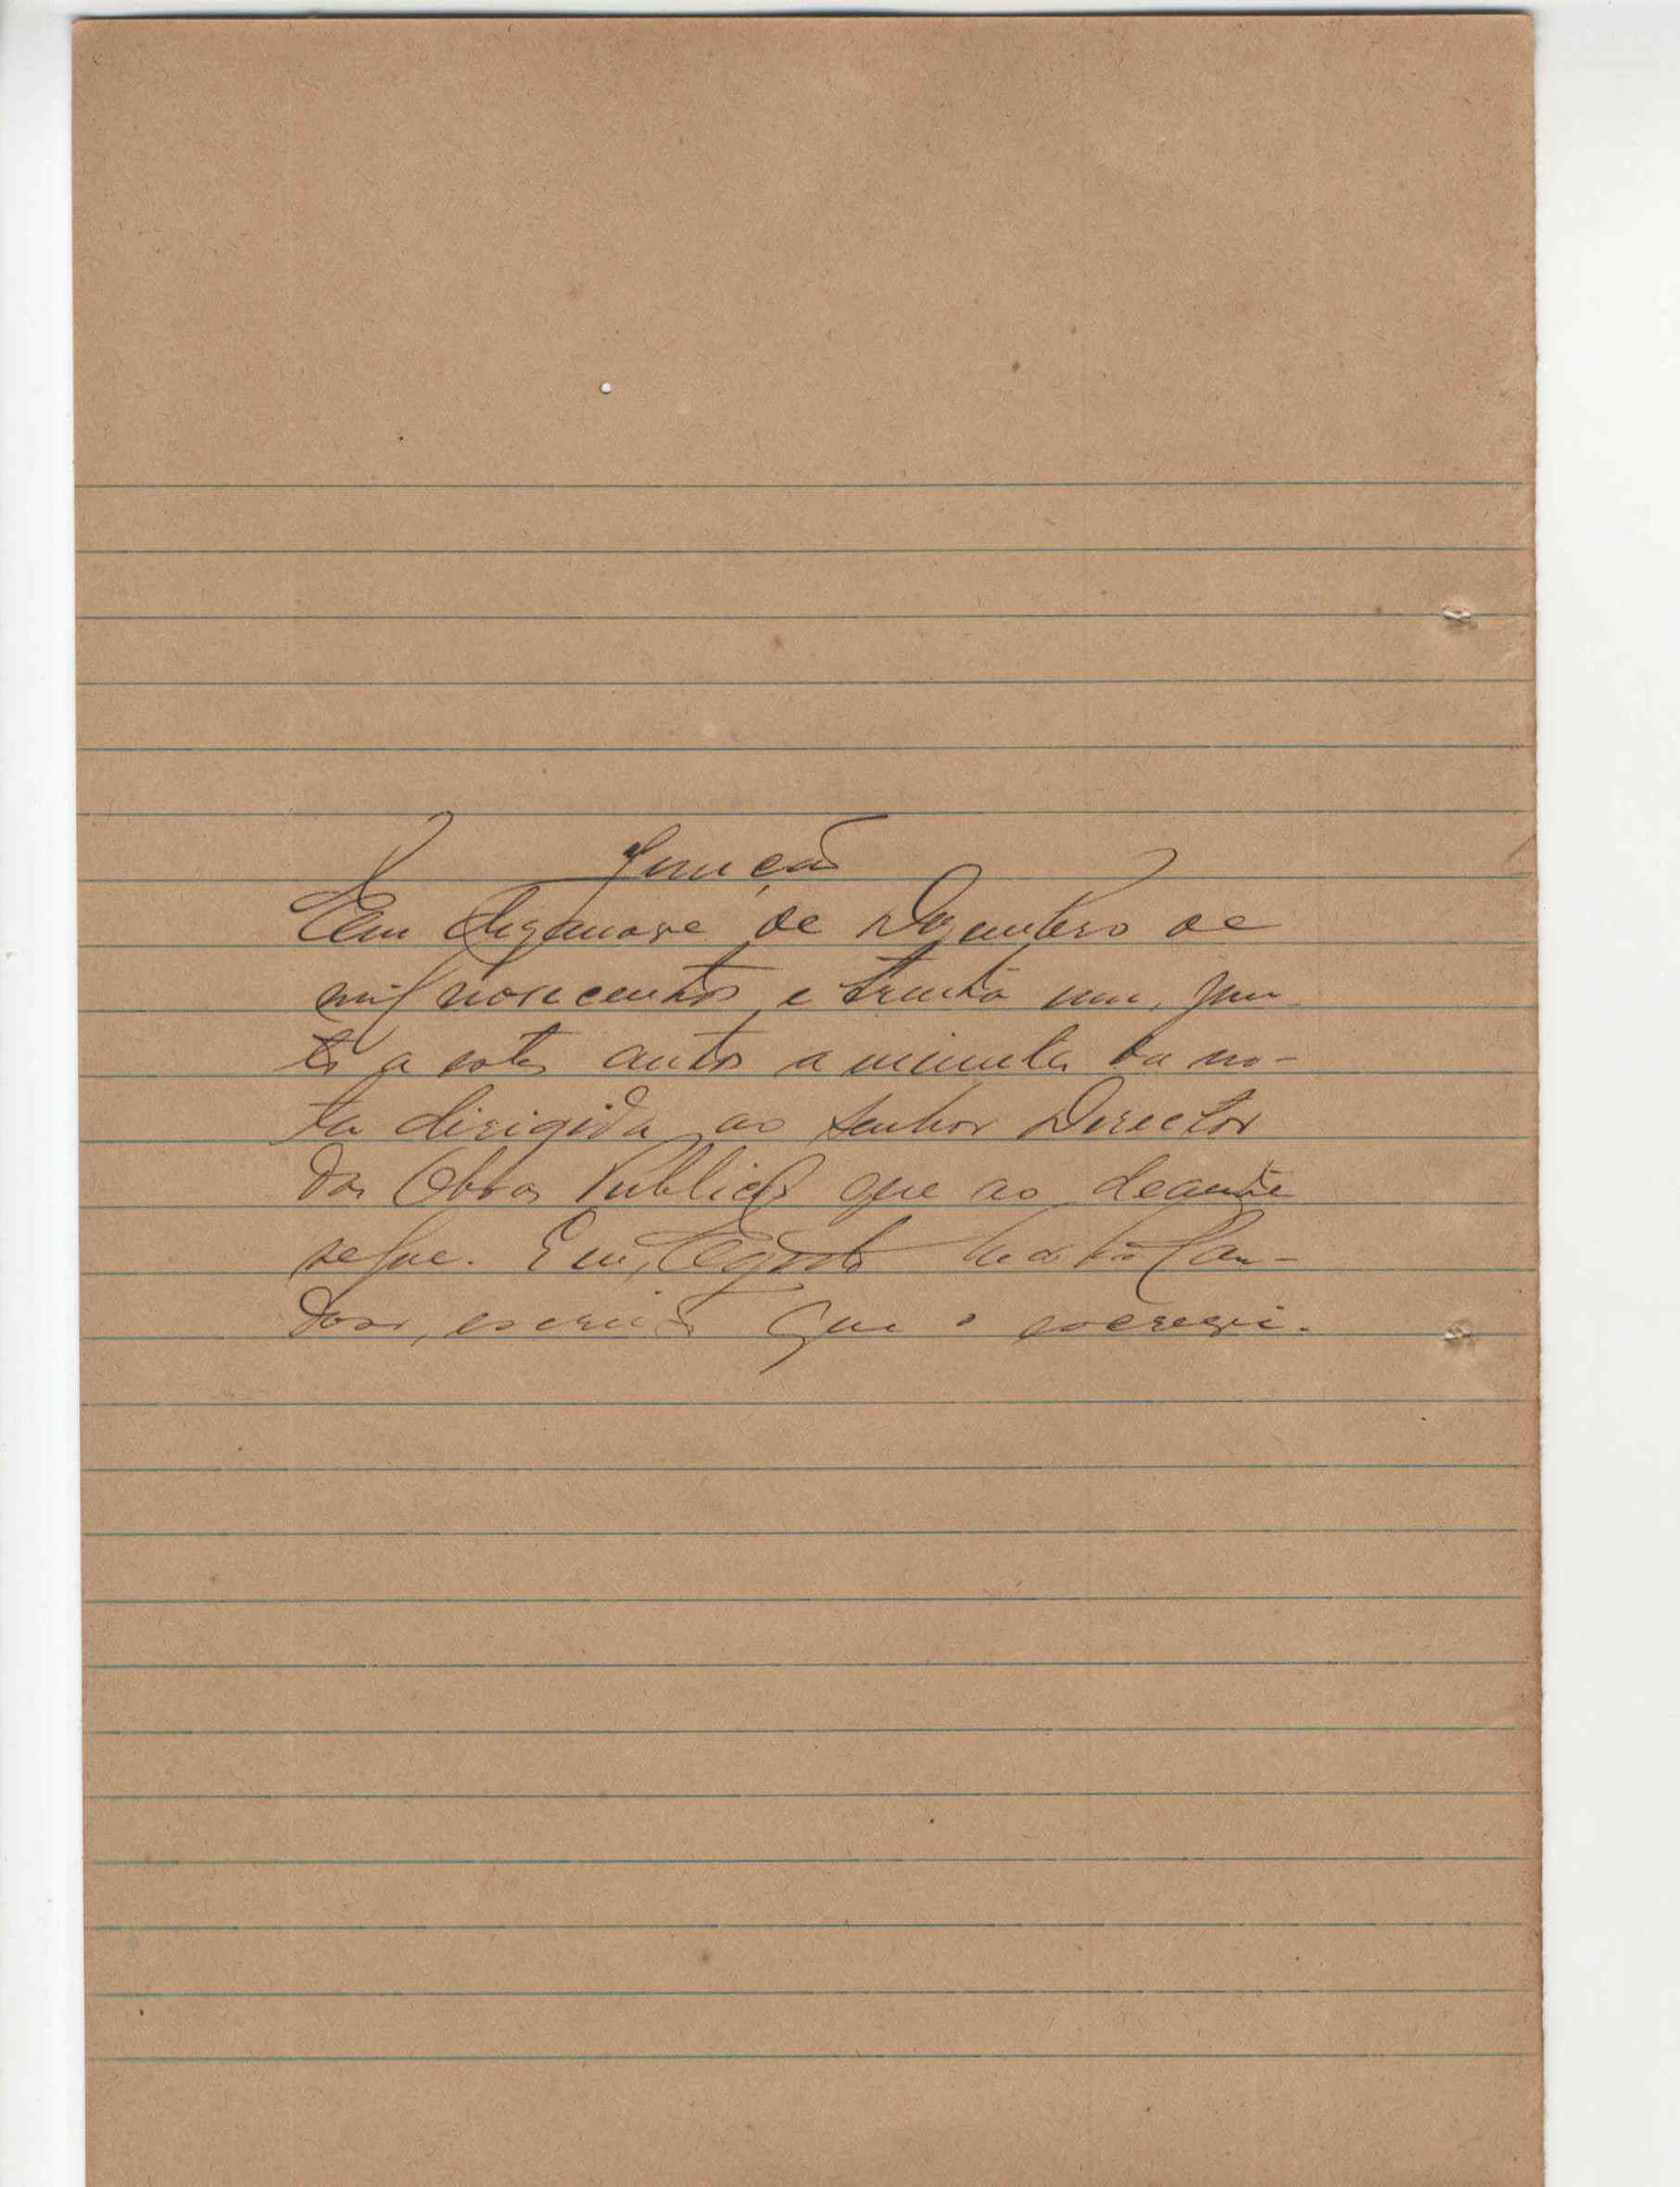 Junção
Em dezanove de Dezembro de
mil novecentos e trinta um, jun-
to a estes autos a minuta da no-
ta dirigida ao Senhor Director
das Obras Publicas que ao deante
segue. Eu,
doso, escrivão que o escrevi.